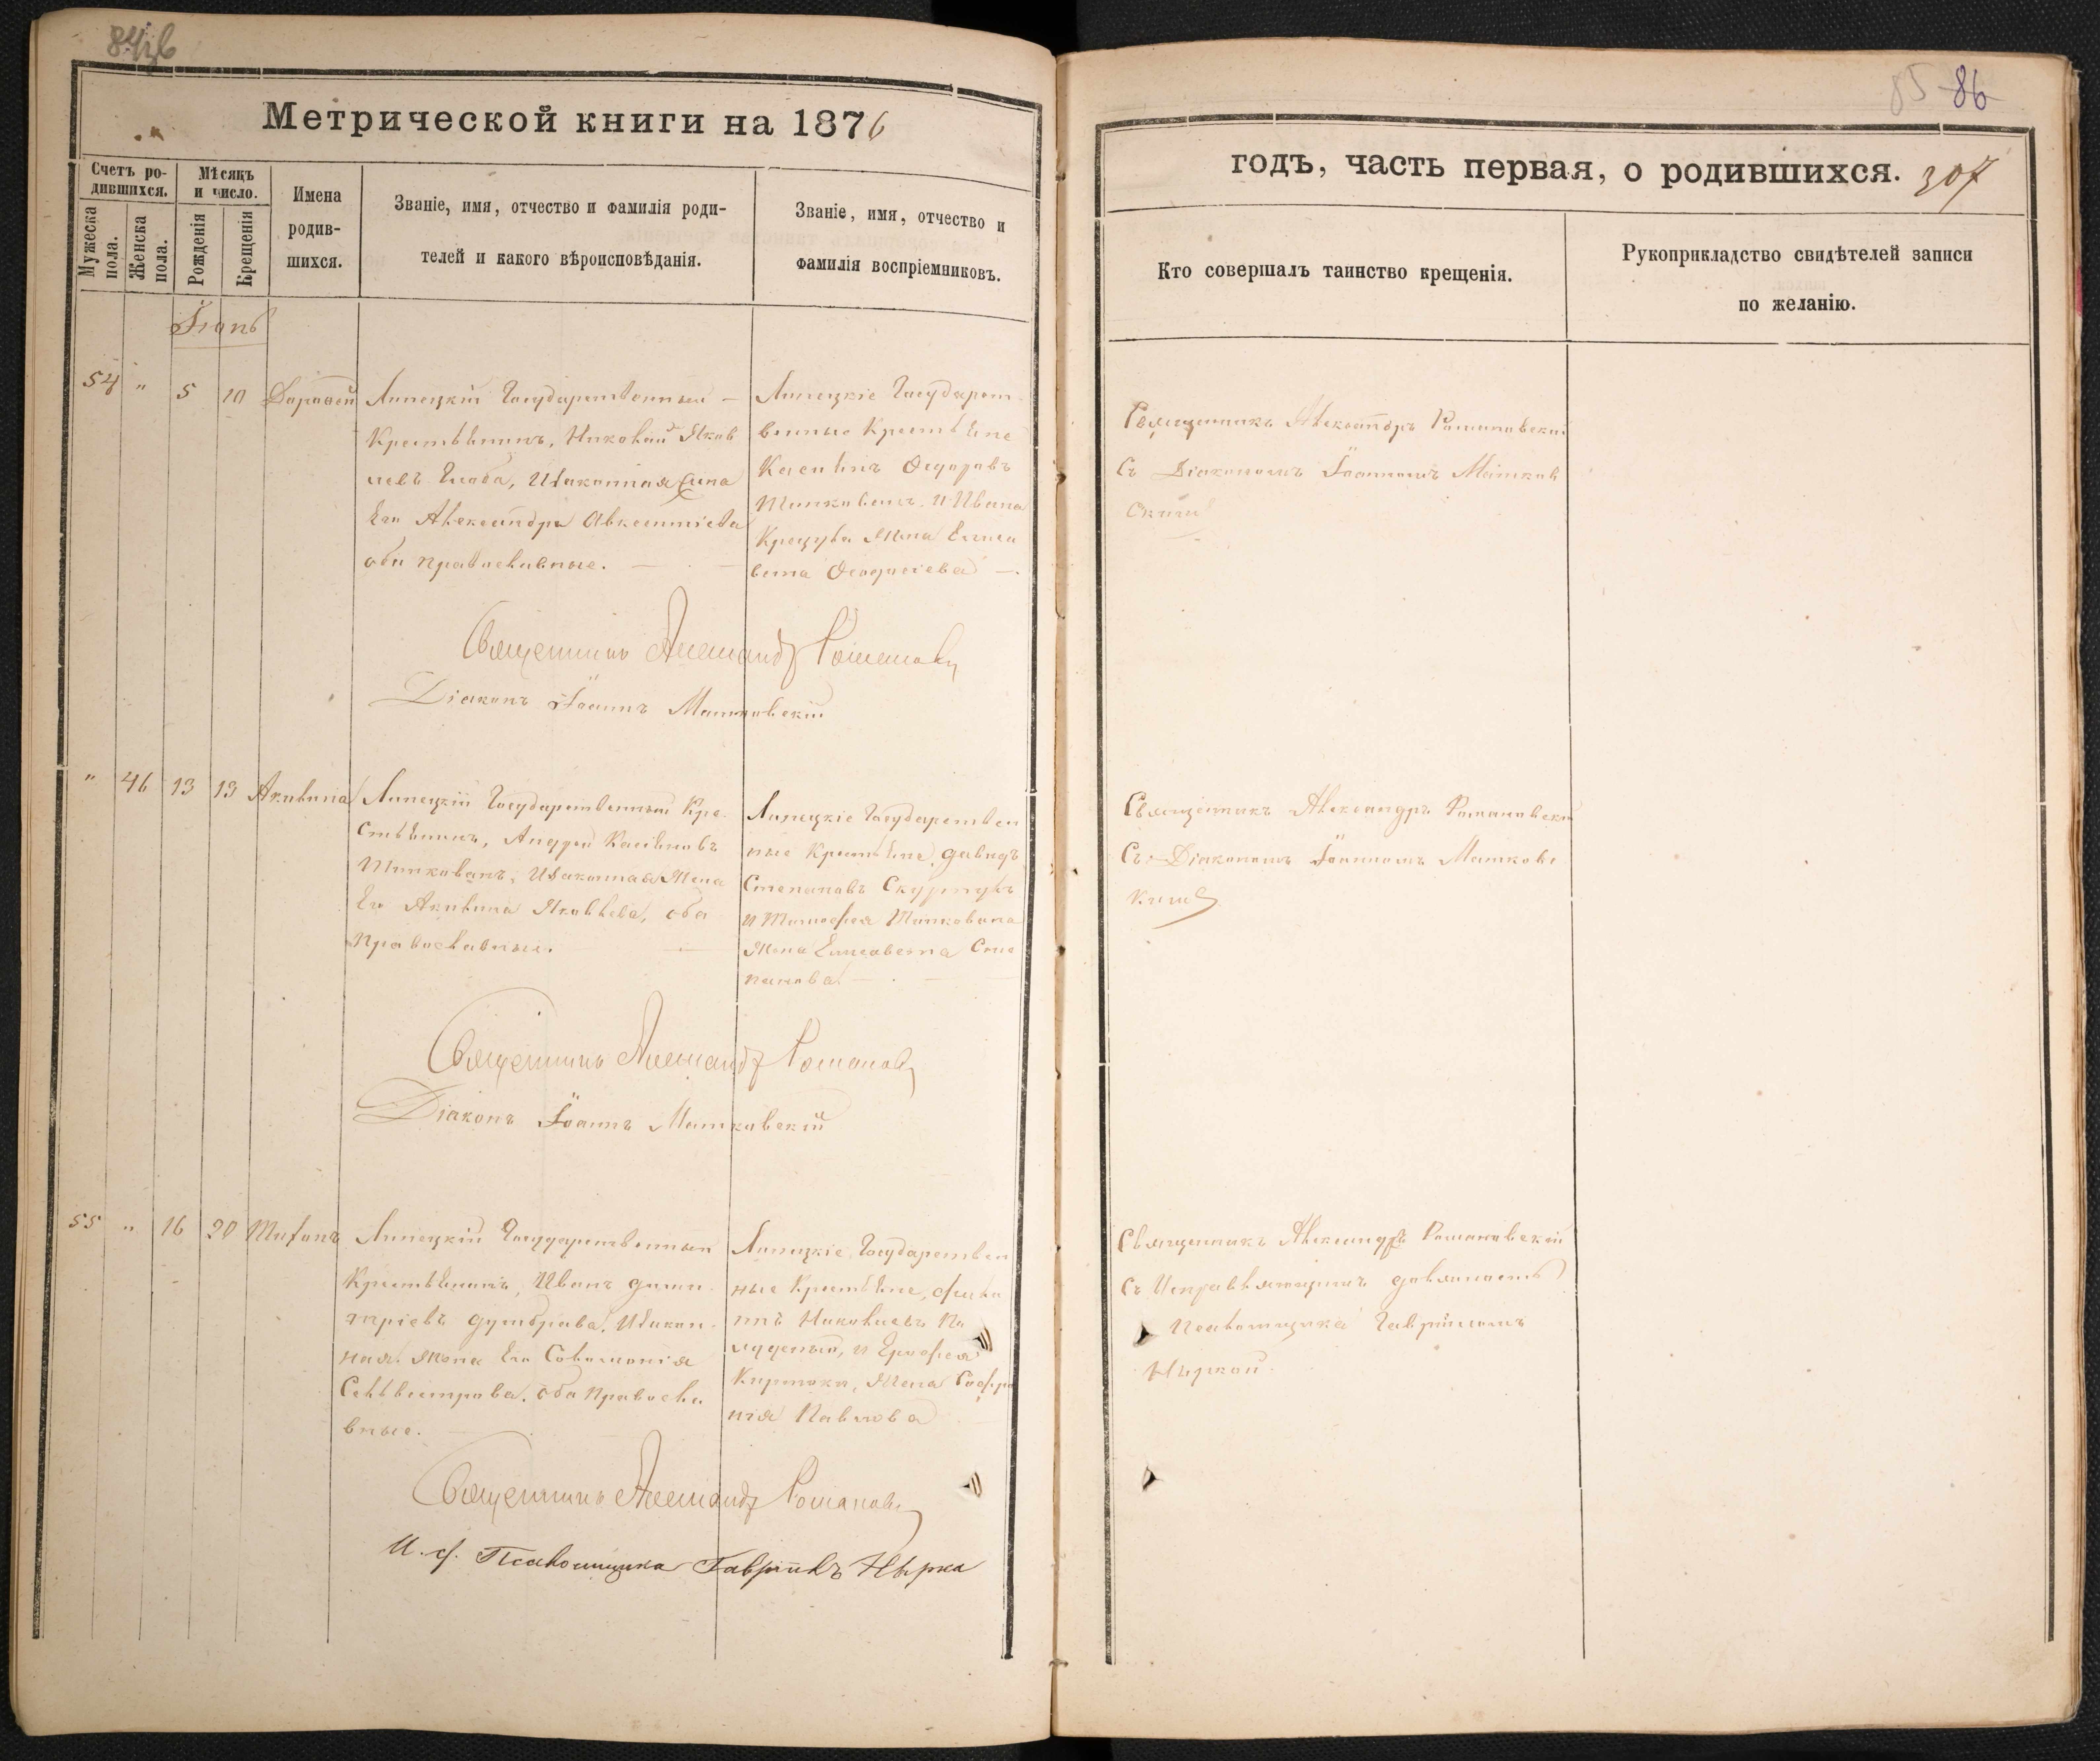 Метрической книги на 1876
Счетъ ро-
дившихся.
Мужеска
пола.
Женска
пола.
Мѣсяцъ
и число.
Рожденія
Крещенія
Имена
родив-
шихся.
Званіе, имя, отчество и фамилія роди-
телей и какого вѣроисповѣданія.
Званіе, имя, отчество и
фамилія воспріемниковъ.
Іюнь
54 " 5 10
Липецкій Государственный
Крестьянинъ, Николай Яков
левъ Глоба, Изаконная Жена
Его Александра Авксентіева
оба православные.
Липецкіе Государст
венные Крестьяне
Ѳедоровъ
Типкованъ и Ивана
Крецула Жена Елиса
вета Ѳеодосіева
Священникъ Александръ Романовск
Діаконъ Іоаннъ Матковскій
" 46 13 13 Акилина
Липецкій Государственный Кре
стьянинъ, Андрей
Типкованъ, Изаконная Жена
Его Акилина Яковлева, оба
Православные.
Липецкіе Государствен
ные Крестьяне, Давидъ
Степановъ Скуртулъ
и Тимофея Типкована
Жена Елисавета Сте
панова
Священникъ Александръ Романовск
Діаконъ Іоаннъ Матковскій
55 " 16 20 Тихонъ
Липецкій Государственный
Крестьянинъ, Иванъ Дими
тріевъ Думбрава, Изакон
ная Жена Его Соломонія
Селивестрова, оба Правосла
вные.
Липецкіе Государствен
ные Крестьяне, Фили
ппъ Николаевъ
и Ерофея
Жена Софро
нія Павлова
Священникъ Александръ Романовск
И. д. Псаломщика Гавріилъ Нырка
85 86
годъ, часть первая, о родившихся. 307
Кто совершалъ таинство крещенія.
Рукоприкладство свидѣтелей записи
по желанію.
Священникъ Александръ Романовскій
Съ Діакономъ Іоанномъ Матков
скимъ
Священникъ Александръ Романовскій
Съ Діакономъ Іоанномъ Матковс
кимъ
Священникъ Александръ Романовскій
Съ Исправляющимъ должность
Псаломщика Гавріиломъ
Ныркой